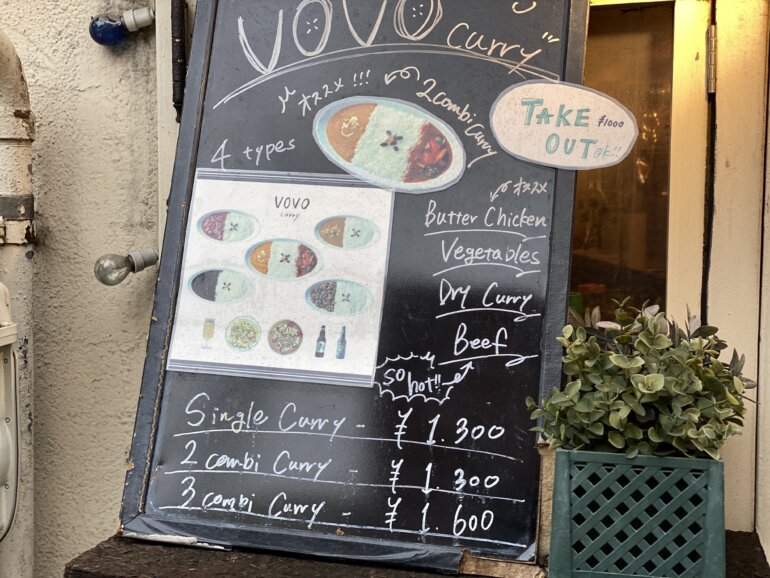 VOVO
curry
オススメ!!!
2combiCurry
TAKE ¥1000
OUT ok!!
4 types
VOVO
curry
オススメ
Butter Chicken
Vegetables
Dry Curry
Beef
so hot!!
Single Curry - ¥ 1.300
2 combi Curry - ¥ 1.300
3 combi Curry - ¥ 1.600